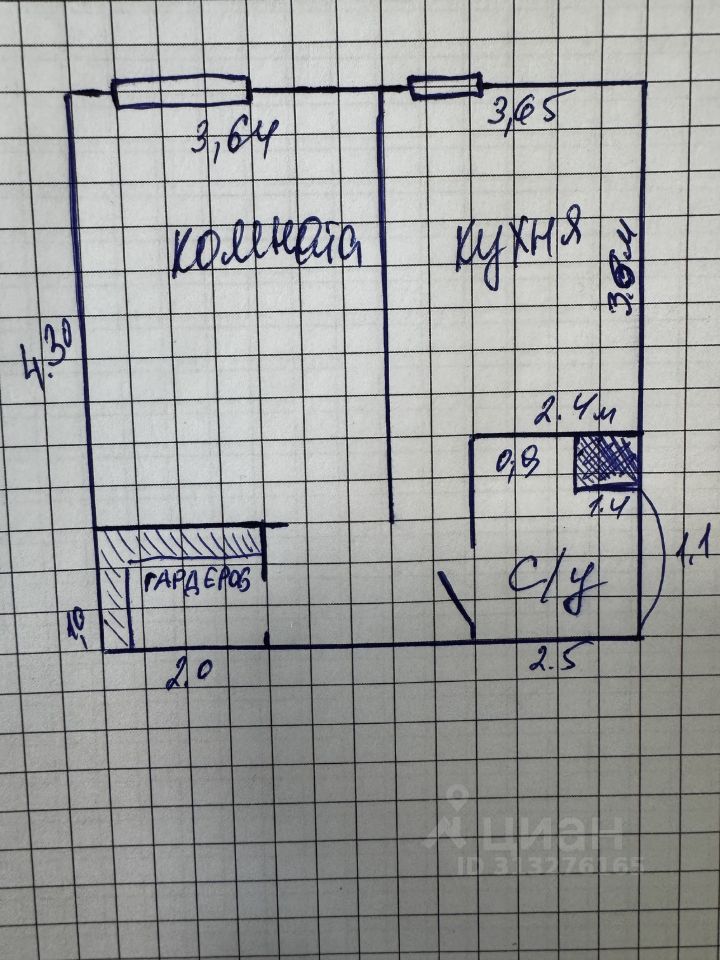 3,64
3,65
комната
кухня
4.30
2.4м
0,9
1.4
1,1
ГАРДЕРОБ
С/у
2.0
2.5
циан
ID 313276165